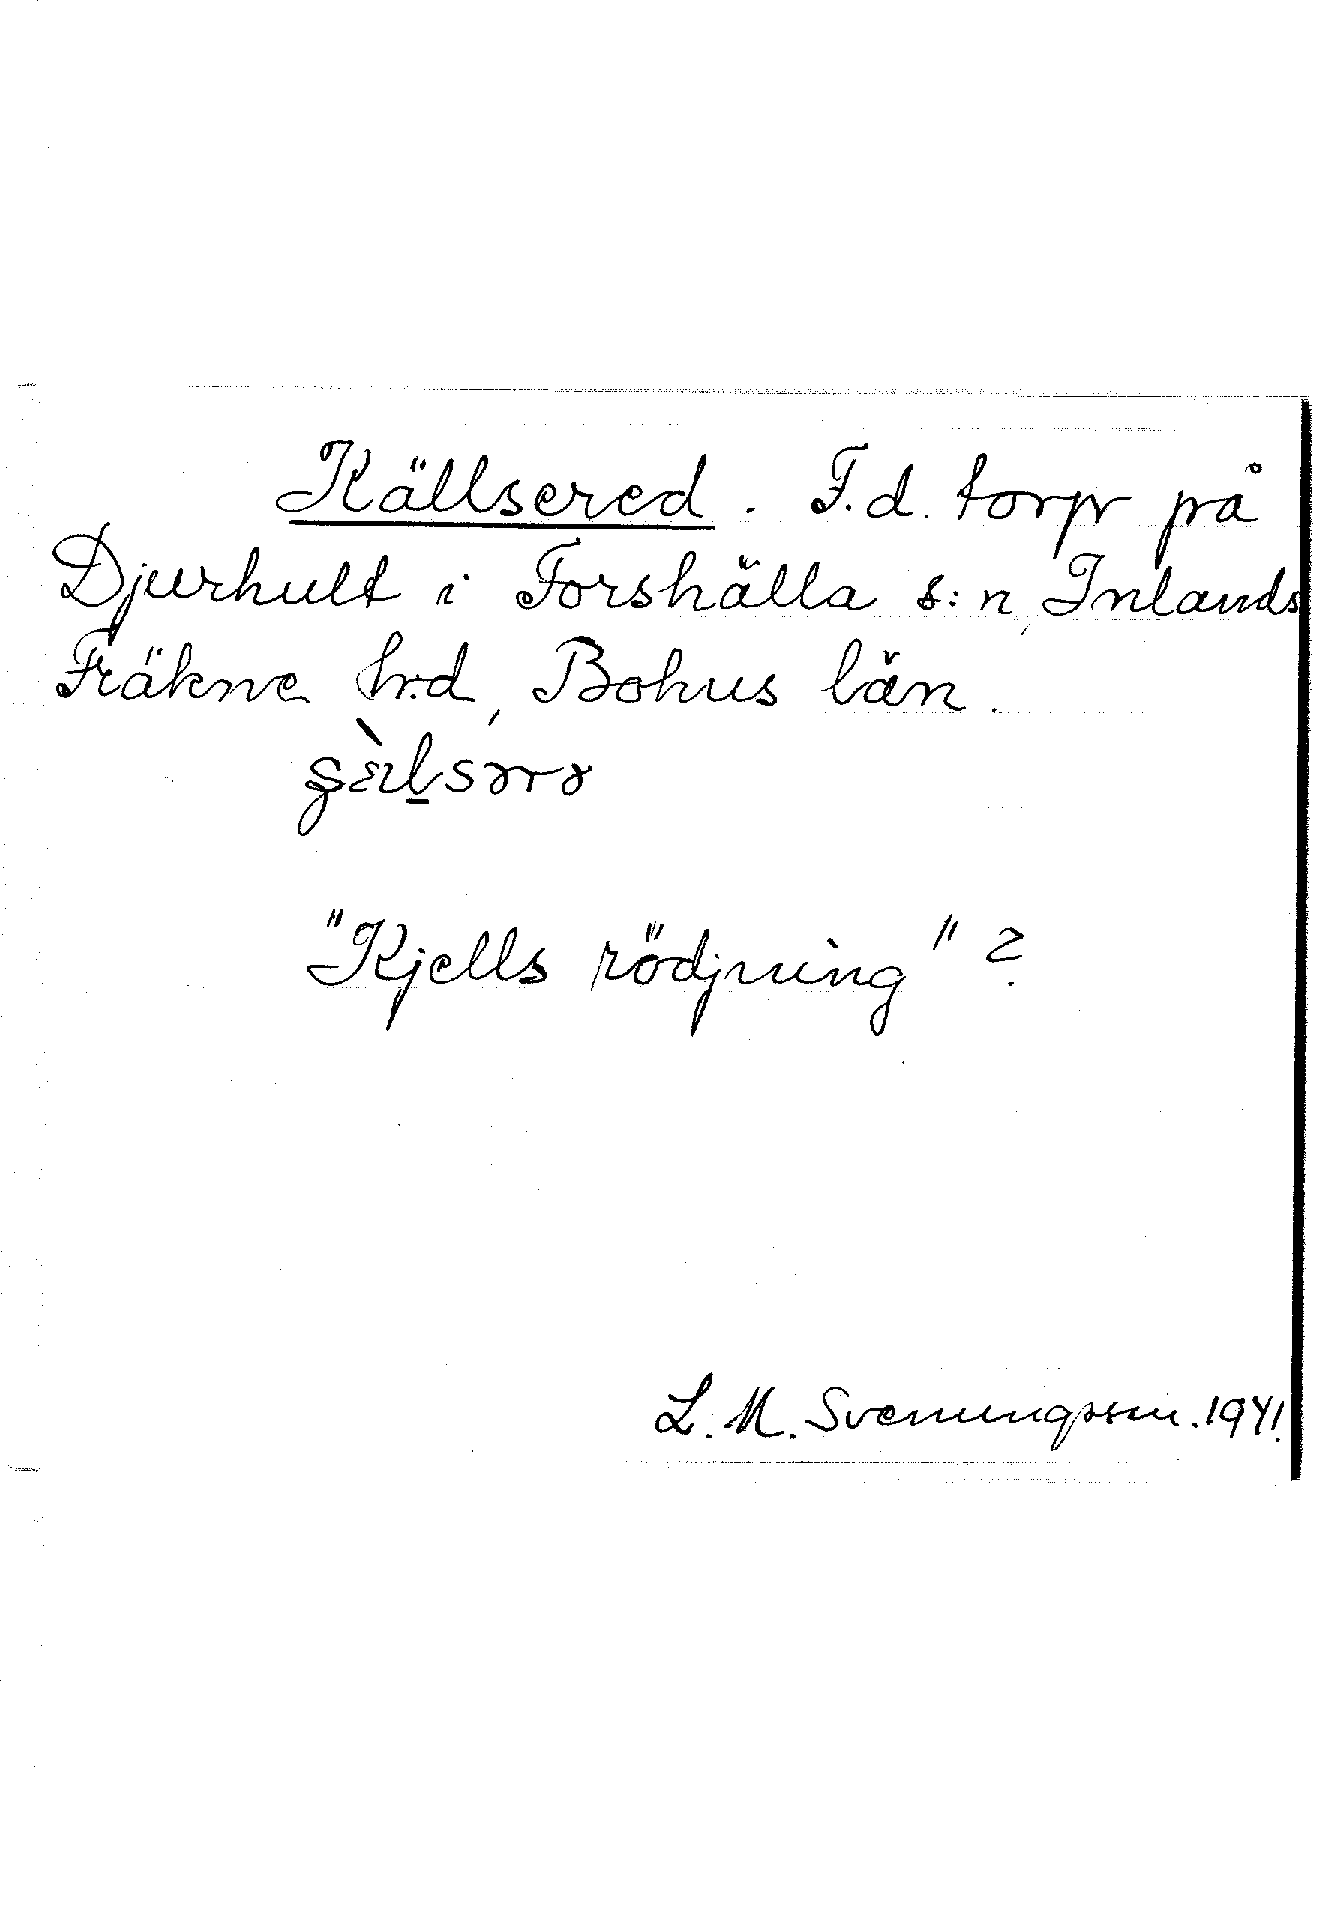 Källsered. F.d. torp på
Djurhult i Forshälla s:n, Inlands
Fräkne hrd, Bohus län.
"Kjells rödjning"?
L. M. Svenungsson. 1941.